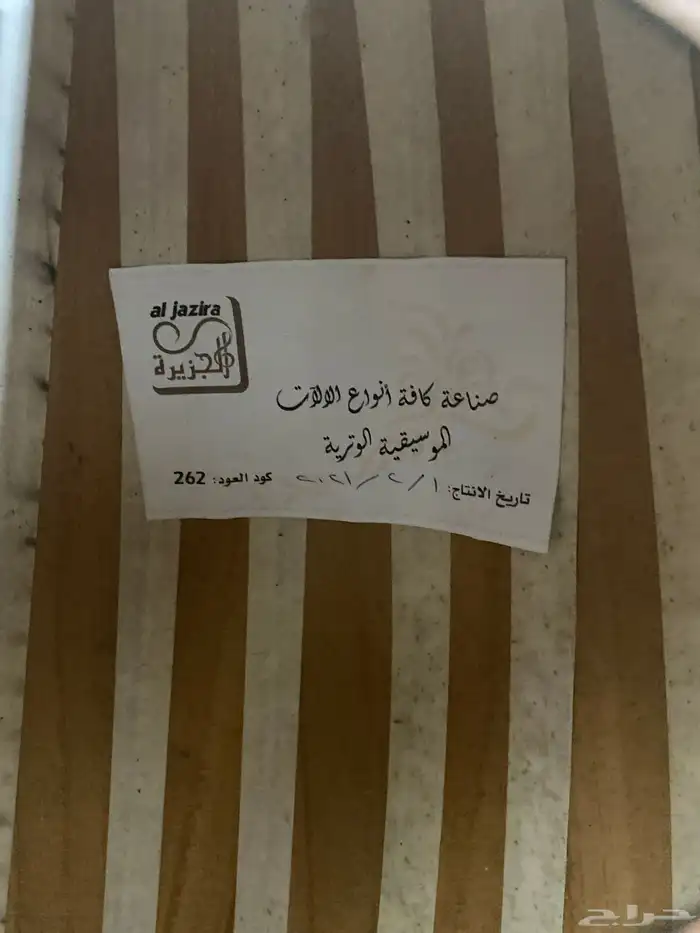 al jazira
الجزيرة
صناعة كافة أنواع الالات
الموسيقية الوترية
تاريخ الانتاج: ١ / ٢ / ٢٠٢١ كود العود: 262
حراج